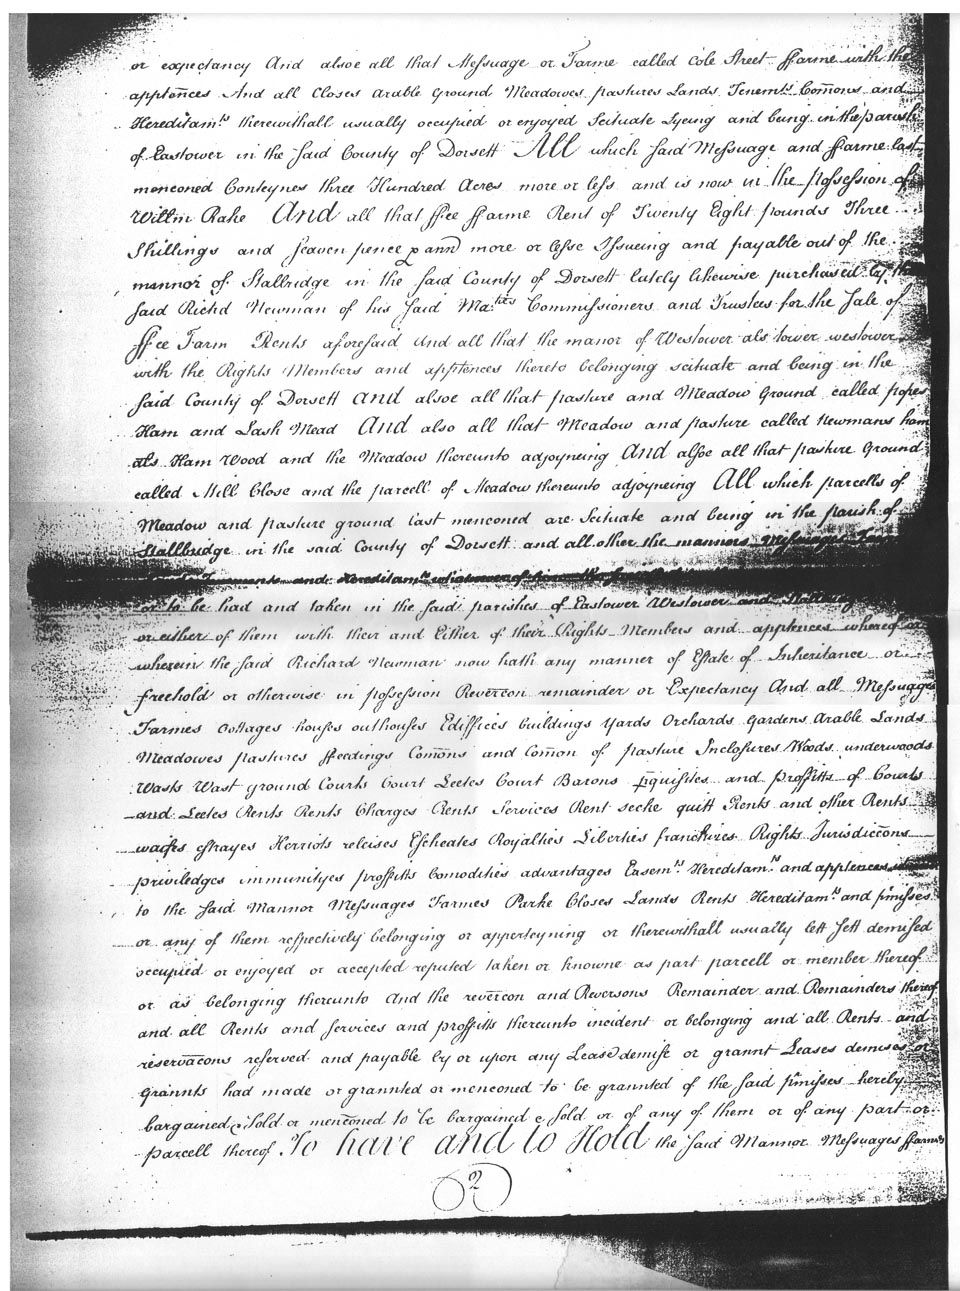 or expectancy And alsoe all that Messuage or Farme called Cole Street ffarme with the
apptences And all Closes arable Ground Meadowes pastures Lands Tenemts Comons and
Hereditamts therewithall usually occupied or enjoyed Scituate Lyeing and being in the parish
of Eastower in the said County of Dorsett All which said Messuage and ffarme last
menconed Conteynes three Hundred Acres more or less and is now in the possession of
Willm Rake And all that ffee ffarme Rent of Twenty Eight pounds Three
Shillings and seaven pence p ann more or lesse Issueing and payable out of the
mannor of Stalbridge in the said County of Dorsett lately likewise purchased by the
said Richd Newman of his said Maties Commissioners and Trustees for the Sale of
ffee Farm Rents aforesaid And all that the manor of Westower als tower westower
with the Rights Members and apptences thereto belonging scituate and being in the
said County of Dorsett And alsoe all that pasture and Meadow Ground called popes
Ham and Lash Mead And also all that Meadow and pasture called Newmans ham
als Ham Wood and the Meadow thereunto adjoyneing And alsoe all that pasture Ground
called Mill Close and the parcell of Meadow thereunto adjoyneing All which parcells of
Meadow and pasture ground last menconed are Scituate and being in the parish of
Stallbridge in the said County of Dorsett and all other the mannors Messuages
Tenements and Hereditamts whatsoever of him the
or to be had and taken in the said parishes of Eastower Westower and
or either of them with their and Either of their Rights Members and apptences whereof or
wherein the said Richard Newman now hath any manner of Estate of Inheritance or
freehold or otherwise in possession Revercon remainder or Expectancy And all Messuages
Farmes Cottages houses outhouses Ediffices buildings Yards Orchards Gardens Arable Lands
Meadowes pastures ffeedings Comons and Comon of pasture Inclosures Woods underwoods
Wasts Wast ground Courts Court Leetes Court Barons pquisites and proffitts of Courts
and Leetes Rents Rents Charges Rents Services Rent secke quitt Rents and other Rents
waifes estrayes Herriots releises Escheates Royalties Liberties franchizes Rights Jurisdiccons
priviledges immunityes proffitts Comodities advantages Easemts Hereditamts and apptences
to the said Mannor Messuages Farmes Parke Closes Lands Rents Hereditamts and pmisses
or any of them respectively belonging or apperteyning or therewithall usually lett sett demised
occupied or enjoyed or accepted reputed taken or knowne as part parcell or member thereof
or as belonging thereunto And the revercon and Reversons Remainder and Remainders thereof
and all Rents and services and proffitts thereunto incident or belonging and all Rents and
reservacons reserved and payable by or upon any Lease demise or grannt Leases demises or
Grannts had made or grannted or menconed to be grannted of the said pmisses hereby
bargained & sold or menconed to be bargained & sold or of any of them or of any part or
parcell thereof To have and to Hold the said Mannor Messuages ffarmes
2